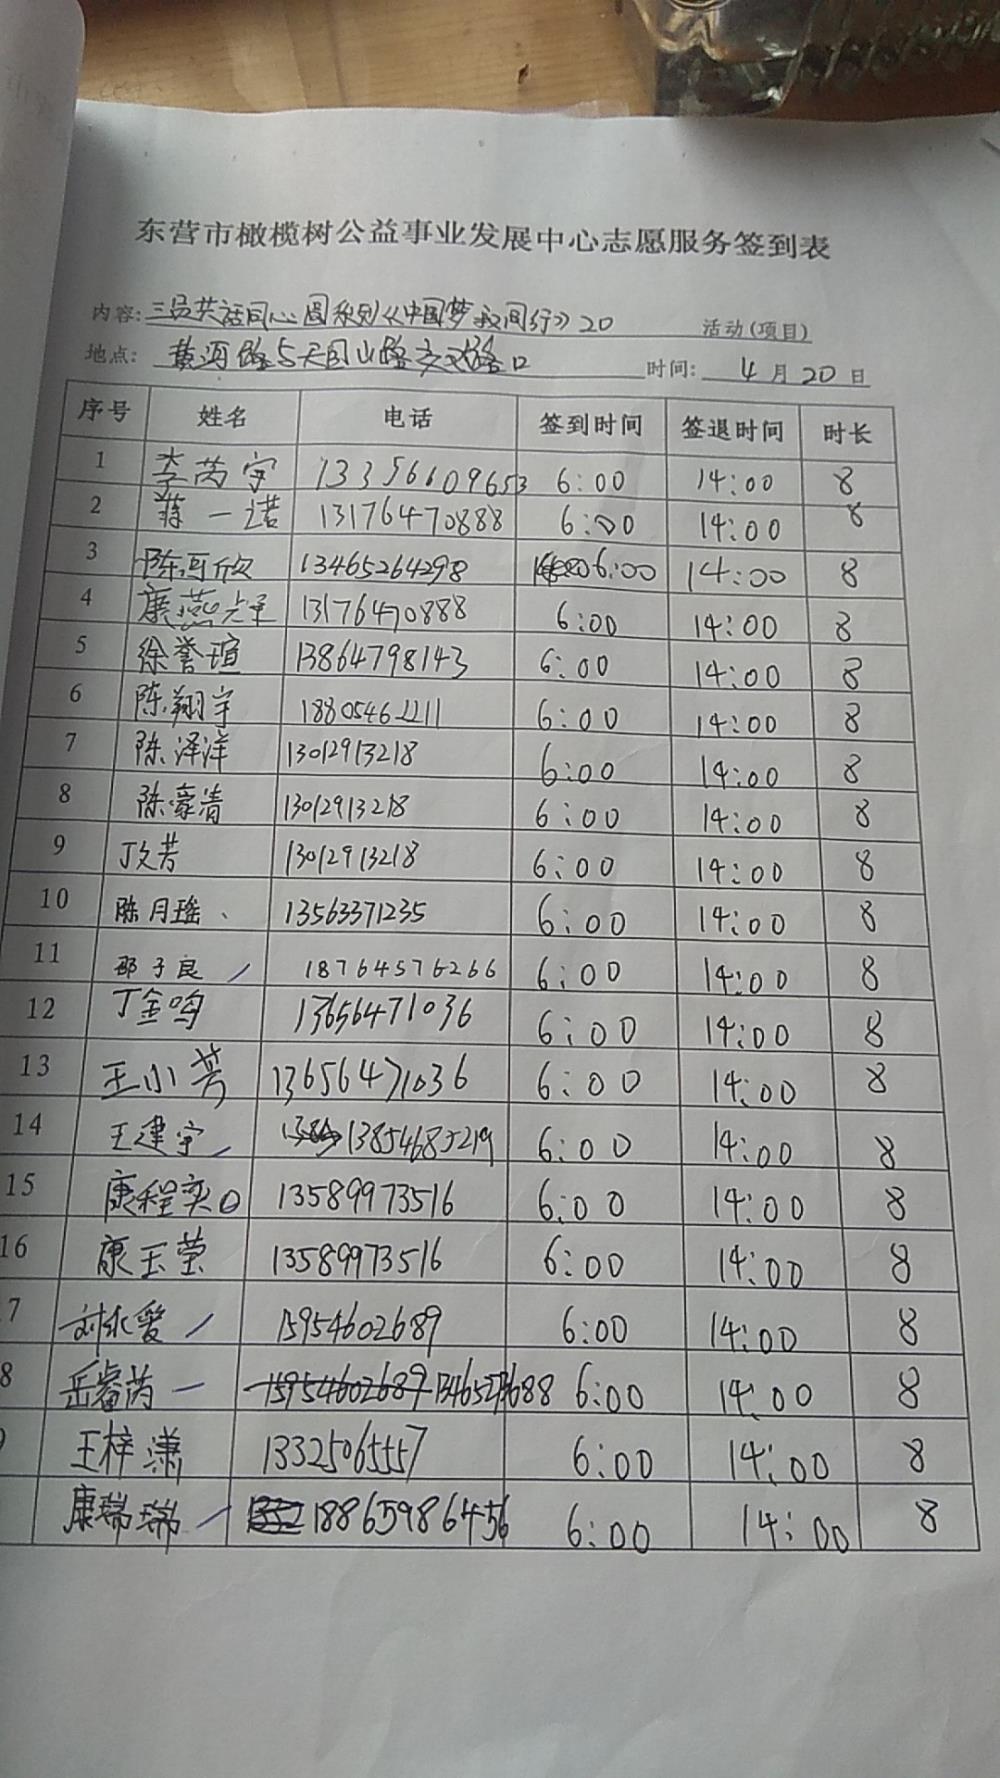 东营市橄榄树公益事业发展中心志愿服务签到表
内容: 三员共话同心圆系列《中国梦我同行》20 活动(项目)
地点: 黄河路与天目山路交叉路口 时间: 4月20日
序号 姓名 电话 签到时间 签退时间 时长
1 李芮宇 13356609653 6:00 14:00 8
2 蒋一诺 13176470888 6:00 14:00 8
3 陈可欣 13465264298 6:00 14:00 8
4 康燕 13176470888 6:00 14:00 8
5 徐誉瑄 13864798143 6:00 14:00 8
6 陈翔宇 18805462211 6:00 14:00 8
7 陈泽洋 13012913218 6:00 14:00 8
8 陈豪清 13012913218 6:00 14:00 8
9 丁文芳 13012913218 6:00 14:00 8
10 陈月瑶 13563371235 6:00 14:00 8
11 邵子良 18764576266 6:00 14:00 8
12 丁金鸣 13656471036 6:00 14:00 8
13 王小芳 13656471036 6:00 14:00 8
14 王建宇 13854685219 6:00 14:00 8
15 康程奕 13589973516 6:00 14:00 8
16 康玉莹 13589973516 6:00 14:00 8
7 刘永爱 15954602689 6:00 14:00 8
8 岳睿芮 15954602689 6:00 14:00 8
王梓潇 13325065557 6:00 14:00 8
康瑞瑞 18865986456 6:00 14:00 8